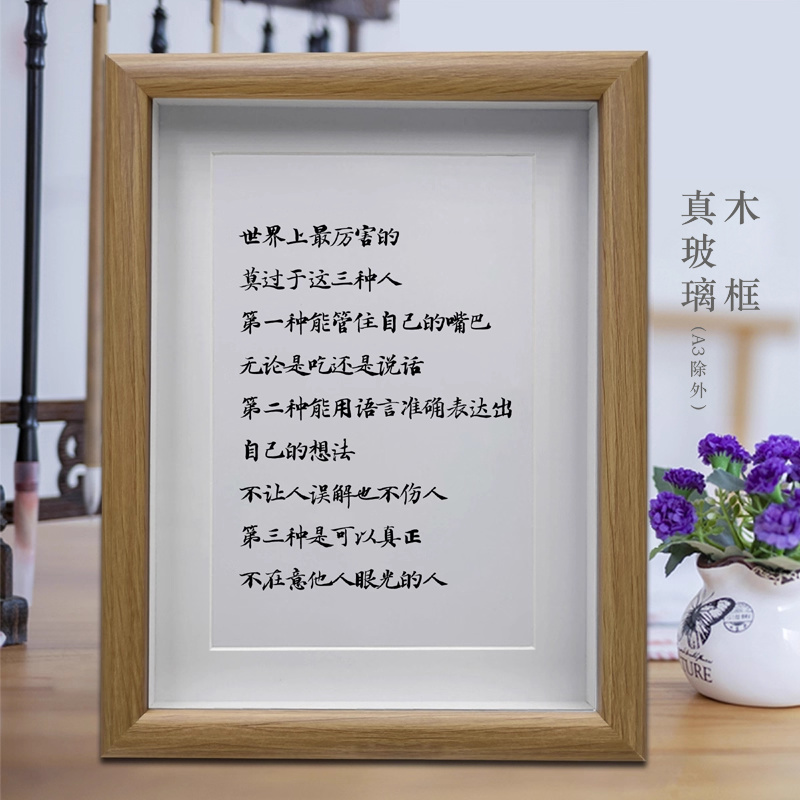 世界上最厉害的
莫过于这三种人
第一种能管住自己的嘴巴
无论是吃还是说话
第二种能用语言准确表达出
自己的想法
不让人误解也不伤人
第三种是可以真正
不在意他人眼光的人
木框
真玻璃(A3除外)
TURE